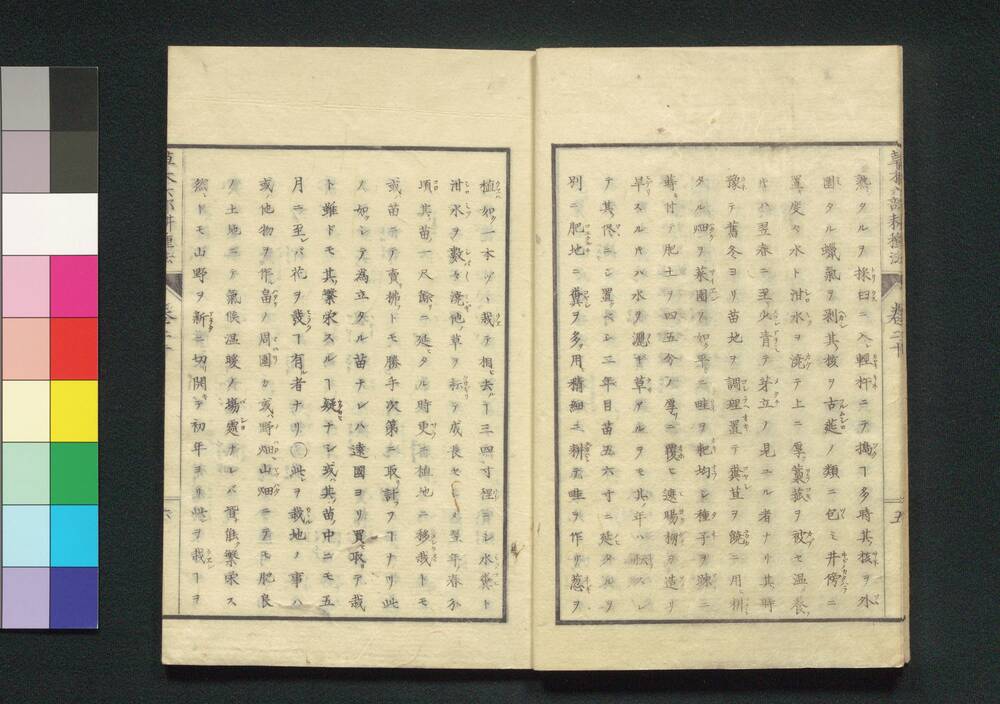 草木六部耕種法 巻二十 五
熟タルヲ採臼ニ入輕杵ニテ搗ヿ多時其核ヲ外
圍タル蠟氣ヲ剥其核ヲ古莚ノ類ニ包ミ井傍ニ
置度々水ト泔水ヲ澆テ上ニ厚藁菰ヲ被セ温養
ハ翌春ニ至少青テ芽立ノ見ユル者ナリ其時
豫テ舊冬ヨリ苗地ヲ調理置テ糞苴ヲ饒ニ用耕
タル畑ヲ菜園ノ如平ニ畦ヲ耙均シ種子ヲ踈ニ
蒔付テ肥土ヲ四五分ノ厚ニ覆ヒ遮陽棚ヲ造リ
旱スルハ水ヲ灑キ草アルヲモ其年ハ スレ
テ其侭ニ置ベシ二年目苗五六寸ニ延タルヲ
別ニ肥地ニ糞ヲ多用精細ニ耕テ畦ヲ作リ葱ヲ
植如一本ツヽ栽テ相去ヿ三四寸程ニシ水糞ト
泔水ヲ數々澆他草ヲ耘テ成長セシ翌年春分
項其苗一尺餘ニ延タル時更ニ植地ニ移栽トモ
或苗ニテ賣拂トモ勝手次第ニ取計フヿナリ此
ノ如シテ為立タル苗ナレハ遠國ヨリ買取テ栽
ト雖ドモ其繁栄スルヿ疑ナシ或其苗中ニモ五
月ニ至レバ花ヲ發ヿ有者ナリ○此ヲ栽地ノ事ハ
或他物ヲ作畠ノ周圍カ或野畑山畑ニテモ肥良
ノ土地ニテ氣候温暖ノ塲處ナレバ皆能繁栄ス
然ドモ山野ヲ新ニ切開テ初年ヨリ此ヲ栽ヿヲ
草木六部耕種法 巻二十 六